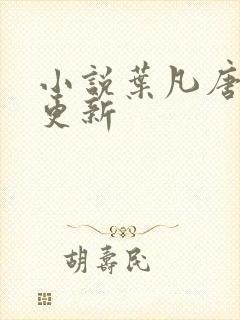 小說葉凡唐
更新
胡壽民